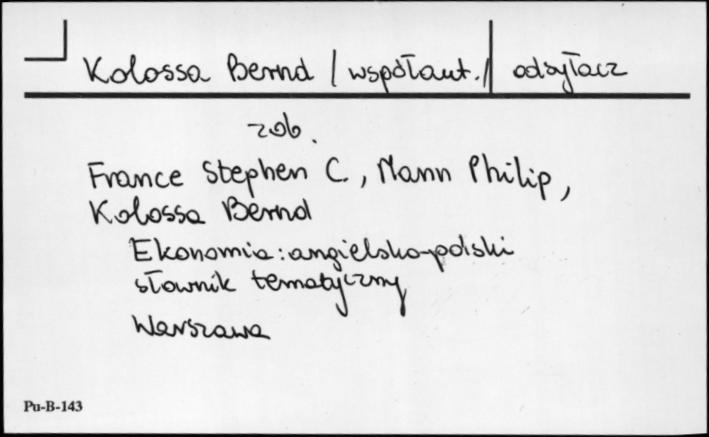 Kolossa Bernd /współaut./ odsyłacz
zob.
France Stephen C., Mann Philip,
Kolossa Bernd
Ekonomia: angielsko-polski
słownik tematyczny
Warszawa
Pu-B-143